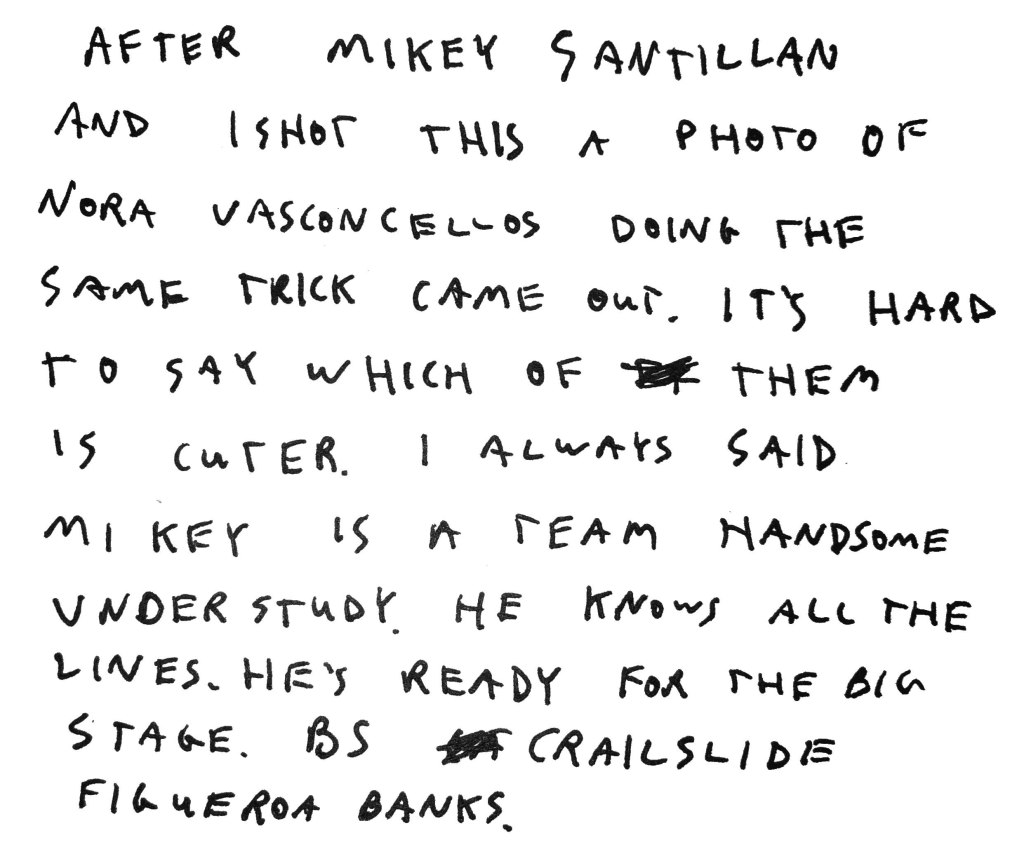 AFTER MIKEY SANTILLAN
AND I SHOT THIS A PHOTO OF
NORA VASCONCELLOS DOING THE
SAME TRICK CAME OUT. IT'S HARD
TO SAY WHICH OF THEM
IS CUTER. I ALWAYS SAID
MIKEY IS A TEAM HANDSOME
UNDERSTUDY. HE KNOWS ALL THE
LINES. HE'S READY FOR THE BIG
STAGE. BS CRAILSLIDE
FIGUEROA BANKS.